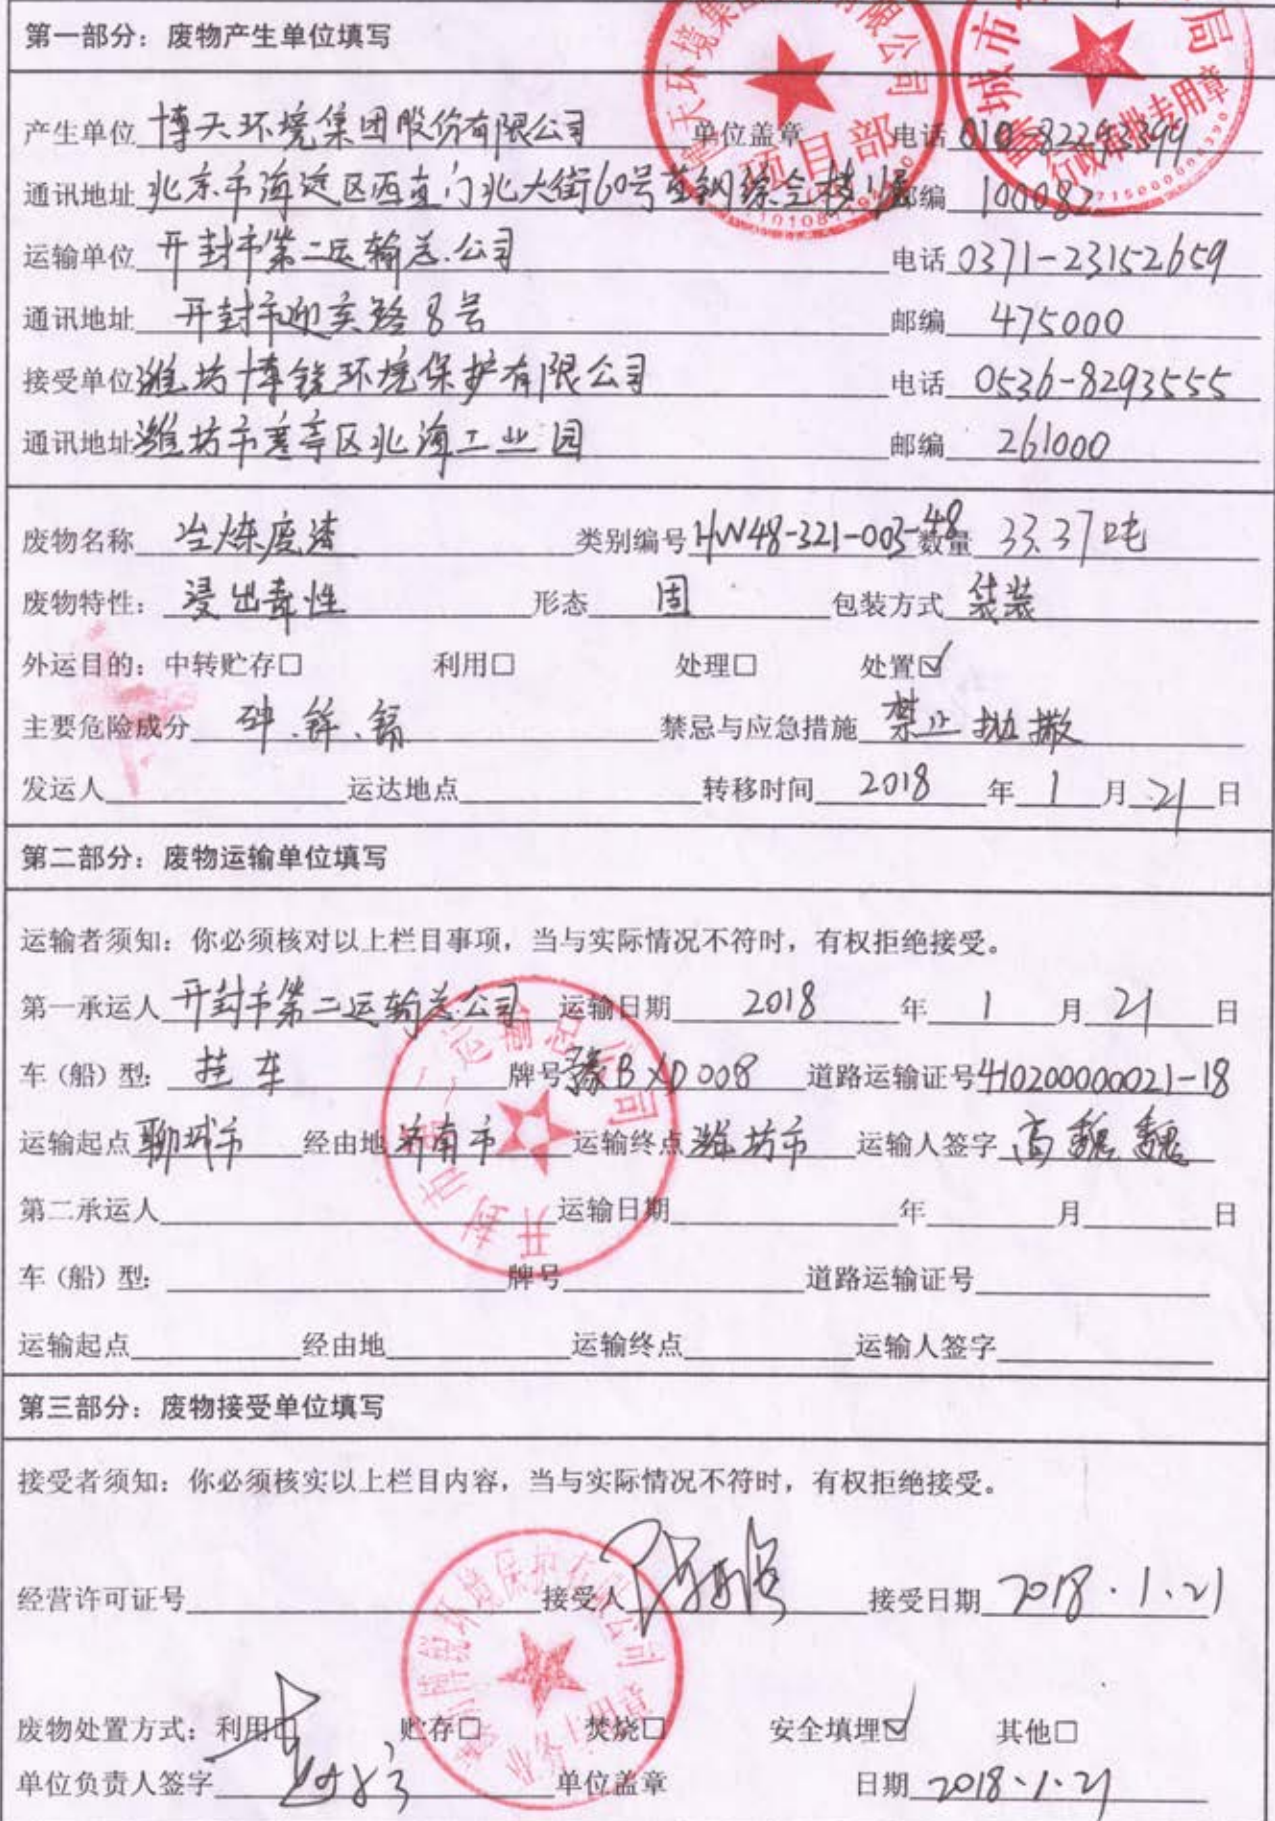 第一部分：废物产生单位填写
产生单位 博天环境集团股份有限公司 单位盖章 电话 010-82293399
通讯地址 北京市海淀区西直门北大街60号首钢综合楼11层 邮编 100082
运输单位 开封市第二运输总公司 电话 0371-23152659
通讯地址 开封市迎宾路8号 邮编 475000
接受单位 潍坊博锐环境保护有限公司 电话 0536-8293555
通讯地址 潍坊市寒亭区北海工业园 邮编 261000
废物名称 冶炼废渣 类别编号 HW48-321-003-48 数量 33.37吨
废物特性：浸出毒性 形态 固 包装方式 袋装
外运目的：中转贮存□ 利用□ 处理□ 处置☑
主要危险成分 砷、锌、镉 禁忌与应急措施 禁止抛撒
发运人 运达地点 转移时间 2018 年 1 月 21 日
第二部分：废物运输单位填写
运输者须知：你必须核对以上栏目事项，当与实际情况不符时，有权拒绝接受。
第一承运人 开封市第二运输总公司 运输日期 2018 年 1 月 21 日
车（船）型: 挂车 牌号 豫BXD008 道路运输证号 410200000021-18
运输起点 聊城市 经由地 济南市 运输终点 潍坊市 运输人签字 高魏魏
第二承运人 运输日期 年 月 日
车（船）型: 牌号 道路运输证号
运输起点 经由地 运输终点 运输人签字
第三部分：废物接受单位填写
接受者须知：你必须核实以上栏目内容，当与实际情况不符时，有权拒绝接受。
经营许可证号 接受人 接受日期 2018.1.21
废物处置方式：利用□ 贮存□ 焚烧□ 安全填埋☑ 其他□
单位负责人签字 单位盖章 日期 2018.1.21
天环境集团 有限公司
项目部
城市 局
行政审批专用章
开封市第二运输总公司
博锐环境保护有限公司